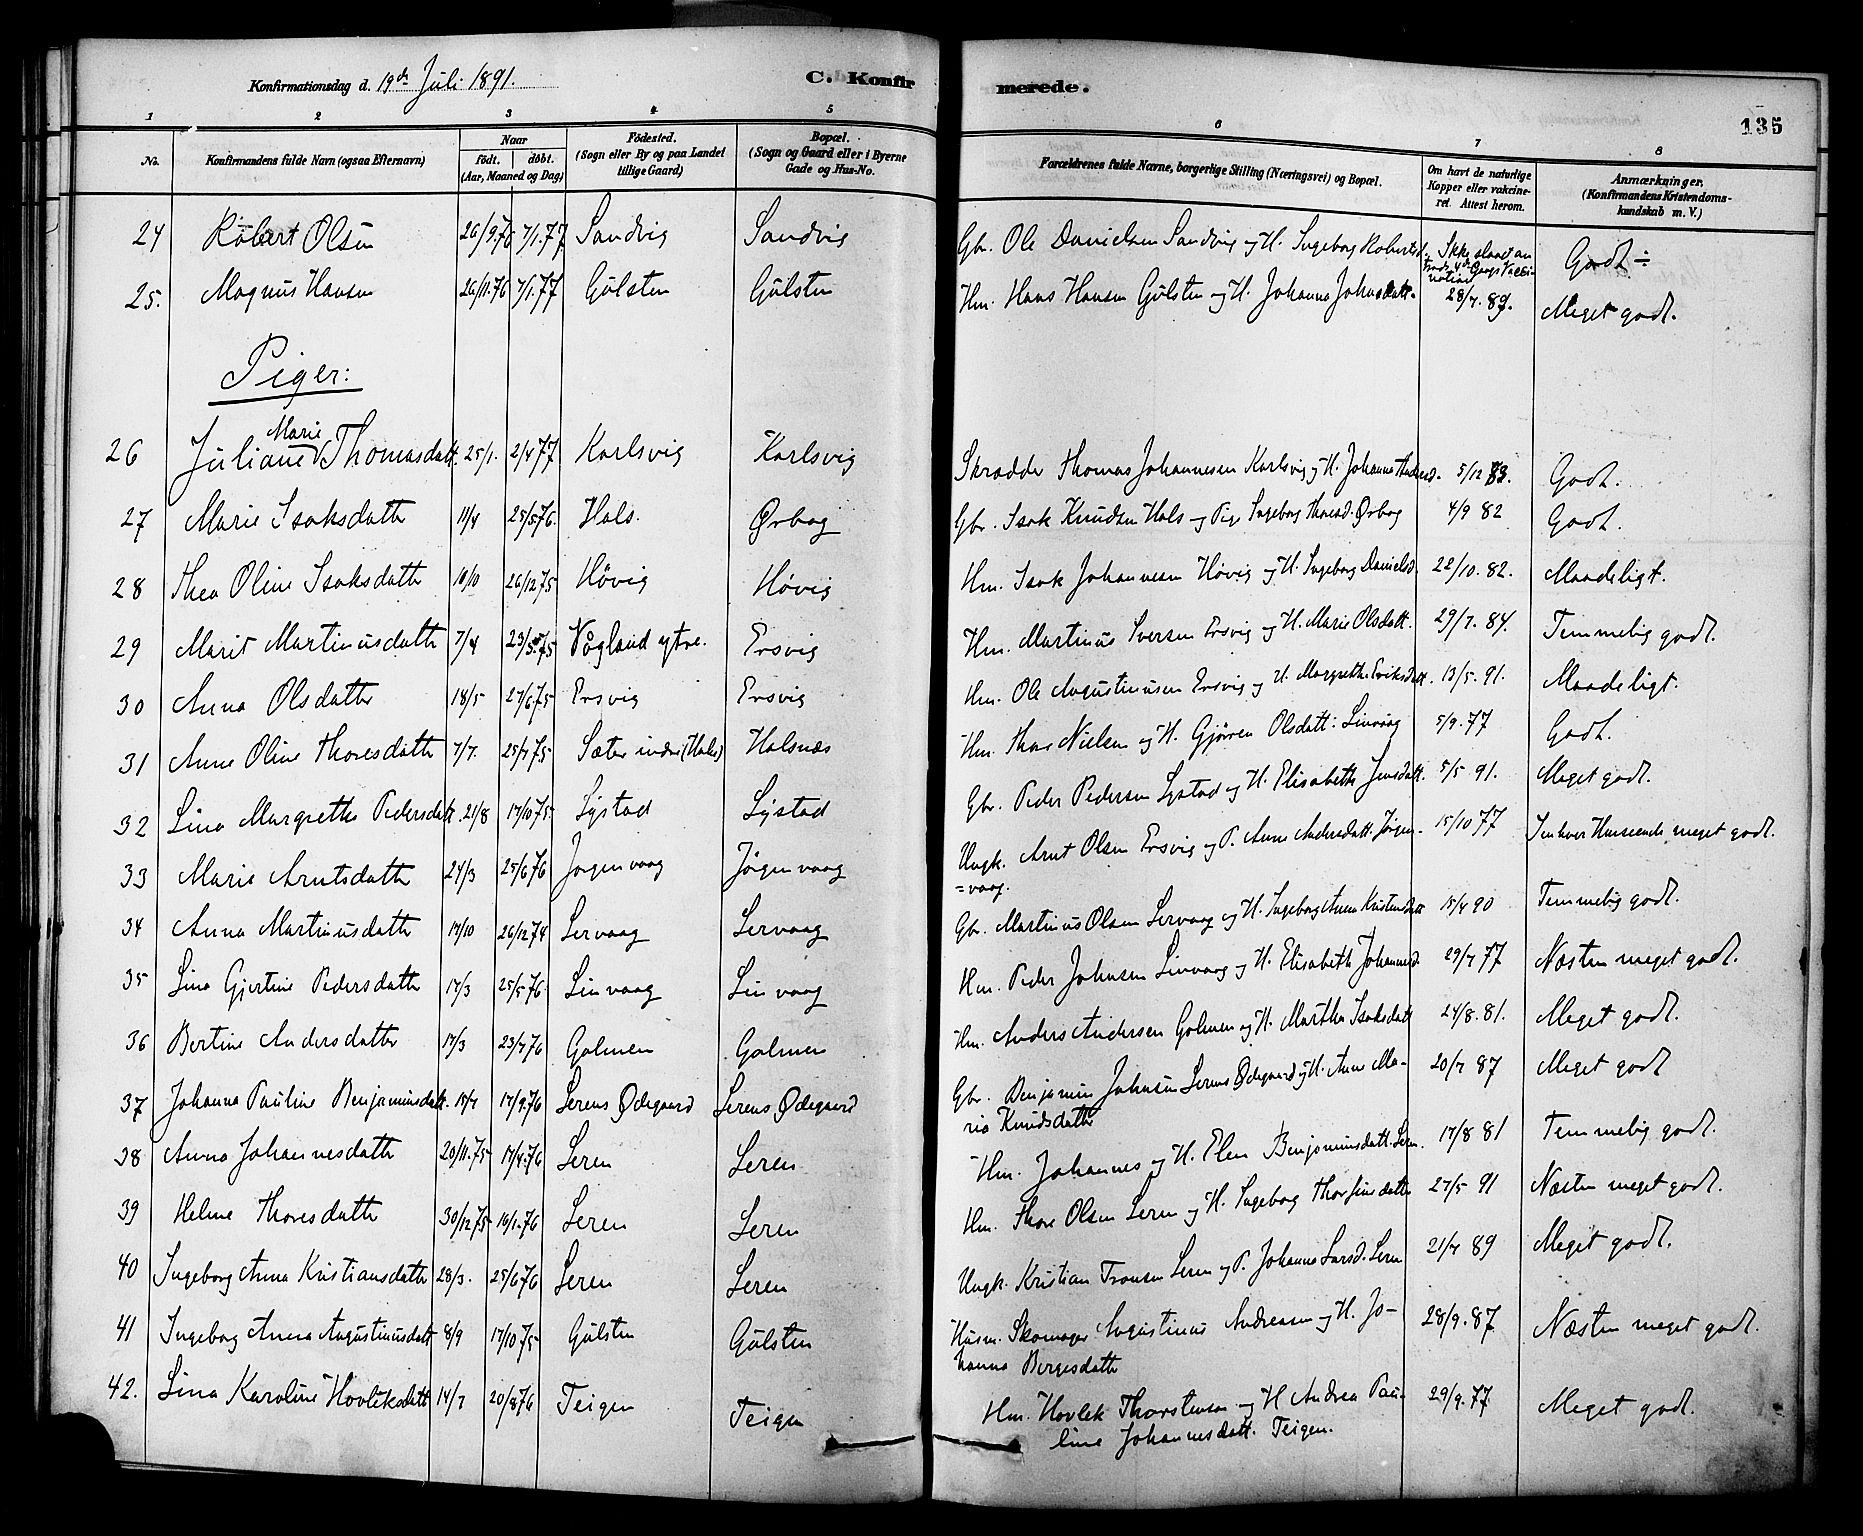 Konfirmationsdag d. 19de Juli 1891. C. Konfirmerede. 135
1 2 3 4 5 6 7 8
No. Konfirmandens fulde Navn (ogsaa Efternavn) Naar født. døbt. (Aar, Maaned og Dag) Fødested. (Sogn eller By og paa Landet tillige Gaard) Bopæl. (Sogn og Gaard eller i Byerne Gade og Hus-No. Forældrenes fulde Navne, borgerlige Stilling (Næringsvei) og Bopæl. Om havt de naturlige Kopper eller vaccineret. Attest herom. Anmærkninger. (Konfirmandens Kristendomskundskab m. V.)
24 Robert Olsen 26/9.76 7/1.77 Sandvig Sandvig Gbr. Ole Danielsen Sandvig og H. Ingeborg Robertsd. Ikke slaaet an trods 4de Gangs Vaccination Godt ÷
25. Magnus Hansen 26/11.76 7/1.77 Gülsten Gülsten Hm. Hans Hansen Gülsten og H. Johanna Johnsdatt. 28/7.89. Meget godt.
Piger:
26 Juliane Marie Thomasdatt. 25/1. 2/4 77 Karlsvig Karlsvig Skrædder Thomas Johannesen Karlsvig og H. Johanna Andersd. 5/12 83. Godt.
27 Marie Isaksdatter 11/4 25/5 76. Hals. Ørbog Gbr. Isak Knudsen Hals og Pige Ingeborg Thoresd. Ørbog 4/9 82 Godt.
28 Thea Oline Isaksdatter 10/10 26/12 75 Høvig Høvig Hm. Isak Johannesen Høvig og H. Ingeborg Danielsd. 22/10. 82. Maadeligt.
29 Marit Martinusdatter 7/4 23/5 75 Vågland ytre. Ersvig Hm. Martinus Iversen Ersvig og H. Marie Olsdatt. 29/7. 84. Temmelig godt.
30 Anna Olsdatter 18/5 27/6 75 Ersvig Ersvig Hm. Ole Augustinusen Ersvig og H. Margrethe Eriksdatt. 13/5. 91. Maadeligt.
31 Anne Oline Thoresdatter 7/7. 25/7 75 Sæter indre (Hals) Halsnæs Hm. Thore Nielsen og H. Gjøren Olsdatt: Linvaag 5/9. 77 Godt.
32 Lina Margrethe Pedersdatt. 21/8 17/10 75 Lystad Lystad Gbr. Peder Pedersen Lystad og H. Elisabeth Jensdatt. 5/5 91. Meget godt.
33 Marie Arntsdatter 24/3 25/6 76 Jørgenvaag Jørgenvaag Ungk. Arnt Olsen Ersvig og P. Anne Andersdatt. Jørgen=vaag. 15/10 77 Indover Henseende meget godt.
34 Anna Martinusdatter 17/10 26/12 74 Lervaag Lervaag Gbr. Martinus Olsen Lervaag og H. Ingeborg Anna Kristensdatt 15/4 90 Temmelig godt.
35 Lina Gjertine Pedersdatter 17/3 25/5 76 Linvaag Linvaag Hm. Peder Johnsen Linvaag og H. Elisabeth Johannesd. 29/7 77 Næsten meget godt.
36 Bertine Andersdatter 17/3 23/4 76 Golmen Golmen Hm. Anders Andersen Golmen og H. Martha Isaksdatt 24/8. 81. Meget godt.
37 Johanna Pauline Benjaminsdatt. 15/7 17/9.76 Lerens Ødegaard Lerens Ødegaard Gbr. Benjamin Johnsen Lerens Ødegaard og H. Anne Maria Knudsdatter 20/7 87 Meget godt
38 Anna Johannesdatter 20/11.75 17/4.76 Leren Leren Hm. Johannes og H. Elen Benjaminsdatt. Leren. 17/8 81 Temmelig godt.
39 Heline Thoresdatter 30/12 75 16/1.76 Leren Leren Hm. Thore Olsen Leren og H. Ingeborg Thorsine datter 27/5 91 Næsten meget godt.
40 Ingeborg Anna Kristiansdatter 28/3. 25/6 76 Leren Leren Ungk. Kristian Tronsen Leren og P. Johanna Larsd. Leren 21/7 89 Meget godt.
41 Ingeborg Anna Augustinusdatt 8/9 17/10 75 Gülsten Gülsten Husm. Skomager Augustinus Andreasen og H. Johanna Bergesdatter 28/9. 87 Næsten meget godt.
42. Lina Karoline Hovleksdatt 14/7 20/8 76 Teigen Teigen Hm. Hovlek Thorstensen og H Andrea Pauline Johannesdatt. Teigen. 29/9. 77 Meget godt.